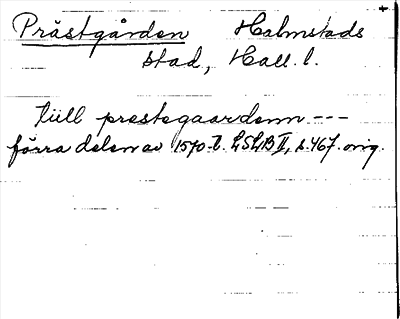 Prästgården Halmstads
stad, Hall. l.
tiill prestegaardenn ---
förra delen av 1570-t. LSLB II, s. 467. orig.